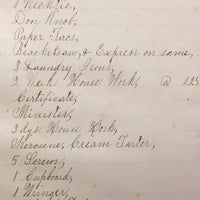 1 Necktie,
Don Knob,
Paper Tacs,
Bracket saw, & Express on same,
3 Laundry Irons,
2 Weeks House Work, @ 1.25
Certificate,
Minister,
3 dys House Work,
Kerosene, Cream Tarter,
5 Screws,
1 Cupboard,
1 Wringer,